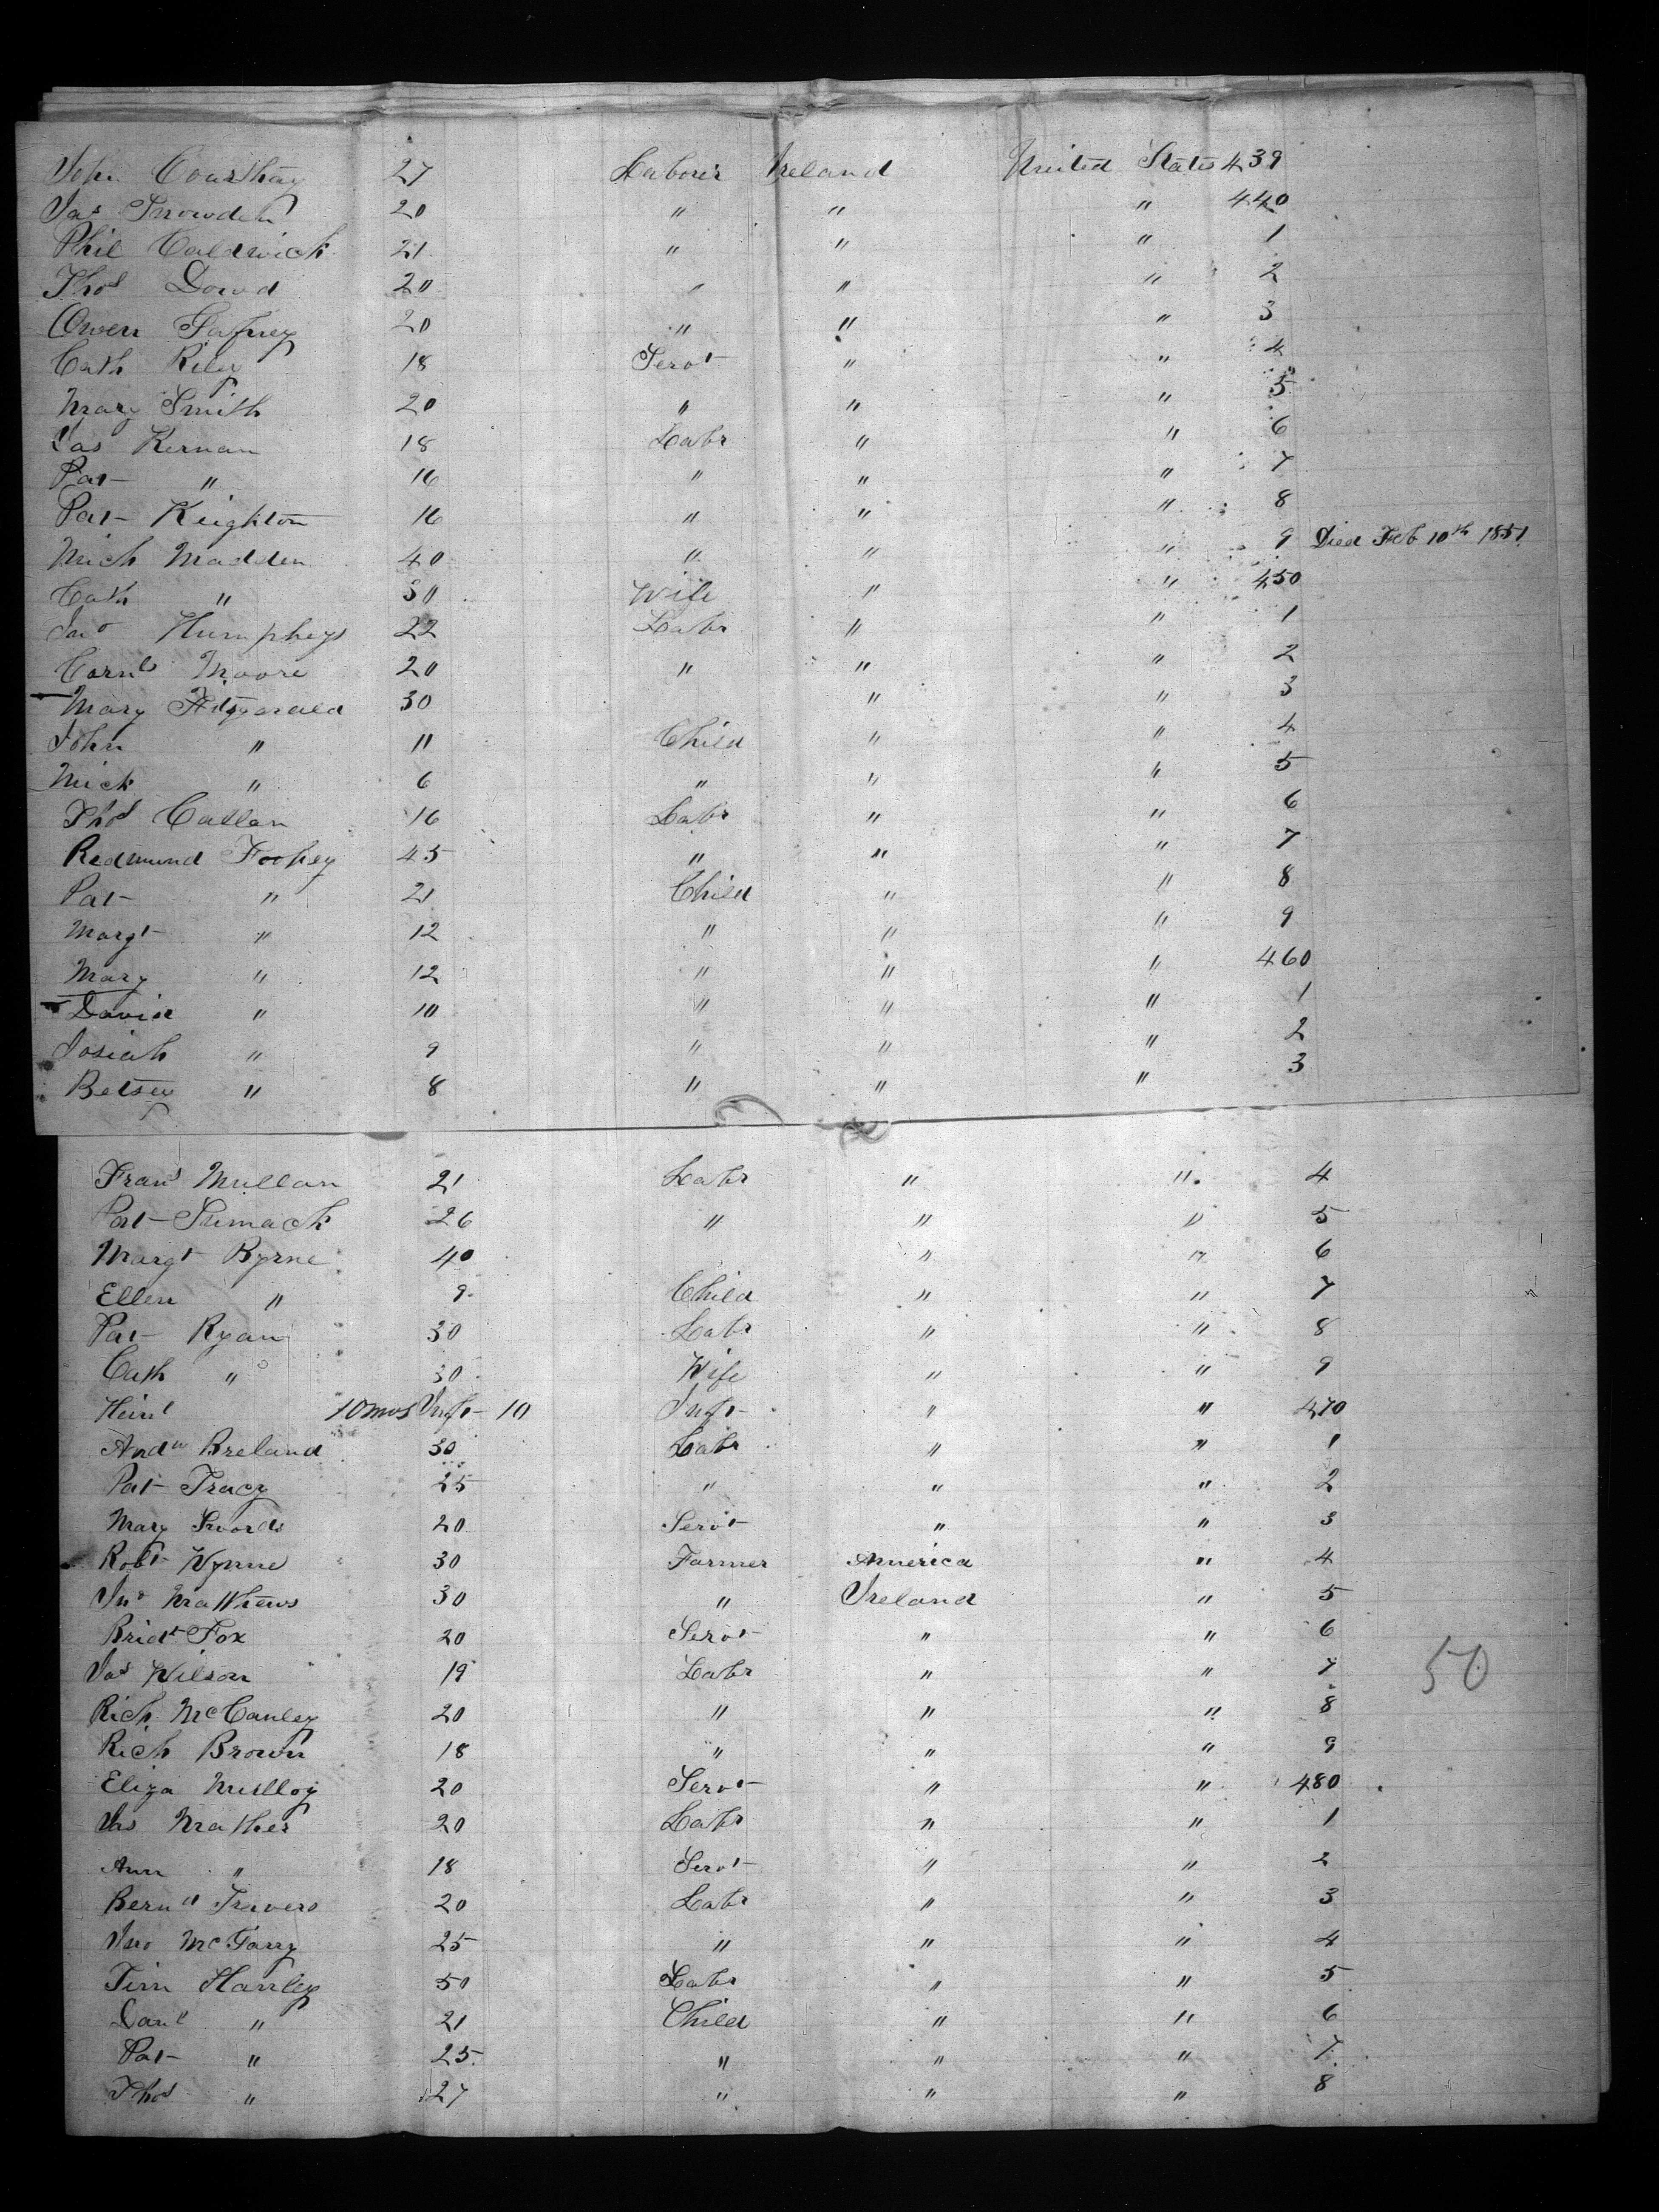 John Courthay 27 Laborer Ireland United States 439
Jas Snowden 20 " " " 440
Phil Caldwick 21 " " " 1
Thos Dowd 20 " " " 2
Owen Gafney 20 " " " 3
Cath Riley 18 Servt " " 4
Mary Smith 20 " " " 5
Jas Kernan 18 Labr " " 6
Pat " 16 " " " 7
Pat Keighton 16 " " " 8
Mich Madden 40 " " " 9 Died Feb 10th 1851
Cath " 30 Wife " " 450
Jno Humpheys 22 Labr " " 1
Cornls Moore 20 " " " 2
Mary Fitzgerald 30 " " 3
John " 11 Child " " 4
Mick " 6 " " " 5
Thos Callan 16 Labr " " 6
Redmund Foohey 45 " " " 7
Pat " 21 Child " " 8
Margt " 12 " " " 9
Mary " 12 " " " 460
David " 10 " " " 1
Josiah " 9 " " " 2
Betsey " 8 " " " 3
Frans Mullan 21 Labr " " 4
Pat 26 " " " 5
Margt Byrne 40 " " 6
Ellen " 9 Child " " 7
Pat Ryan 30 Labr " " 8
Cath " 30 Wife " " 9
10 mos Inft 10 Inft " " 470
Andw Breland 30 Labr " " 1
Pat Tracy 25 " " " 2
Mary Swords 20 Servt " " 3
Robt Wynne 30 Farmer America " 4
Jno Matthews 30 " Ireland " 5
Bridt Fox 20 Servt " " 6
Jas Wilson 19 Labr " " 7 50
Rich McCauley 20 " " " 8
Rich Brown 18 " " " 9
Eliza Mulloy 20 Servt " " 480
Jas Mather 20 Labr " " 1
Ann " 18 Servt " " 2
Bernd Travers 20 Labr " " 3
Jno McGarry 25 " " " 4
Tim Hanley 50 Labr " " 5
Danl " 21 Child " " 6
Pat " 25 " " " 7
Thos " 27 " " " 8